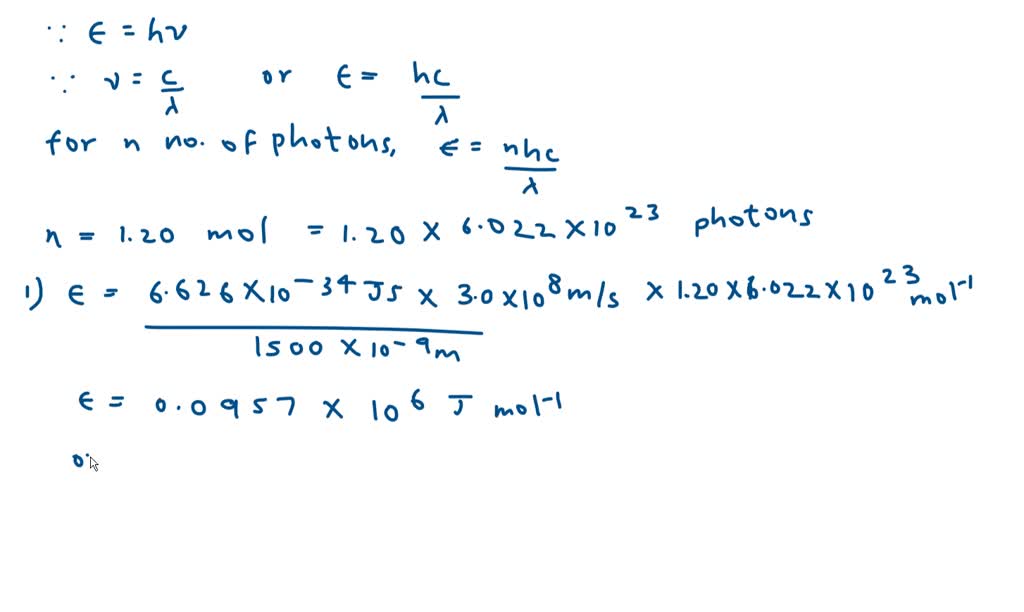 ∵ ε = hν
∵ ν = c/λ or ε = hc/λ
for n no. of photons, ε = nhc/λ
n = 1.20 mol = 1.20 × 6.022 × 10²³ photons
1) ε = 6.626 × 10⁻³⁴ JS × 3.0 × 10⁸ m/s × 1.20 × 6.022 × 10²³ mol⁻¹
1500 × 10⁻⁹ m
ε = 0.0957 × 10⁶ J mol⁻¹